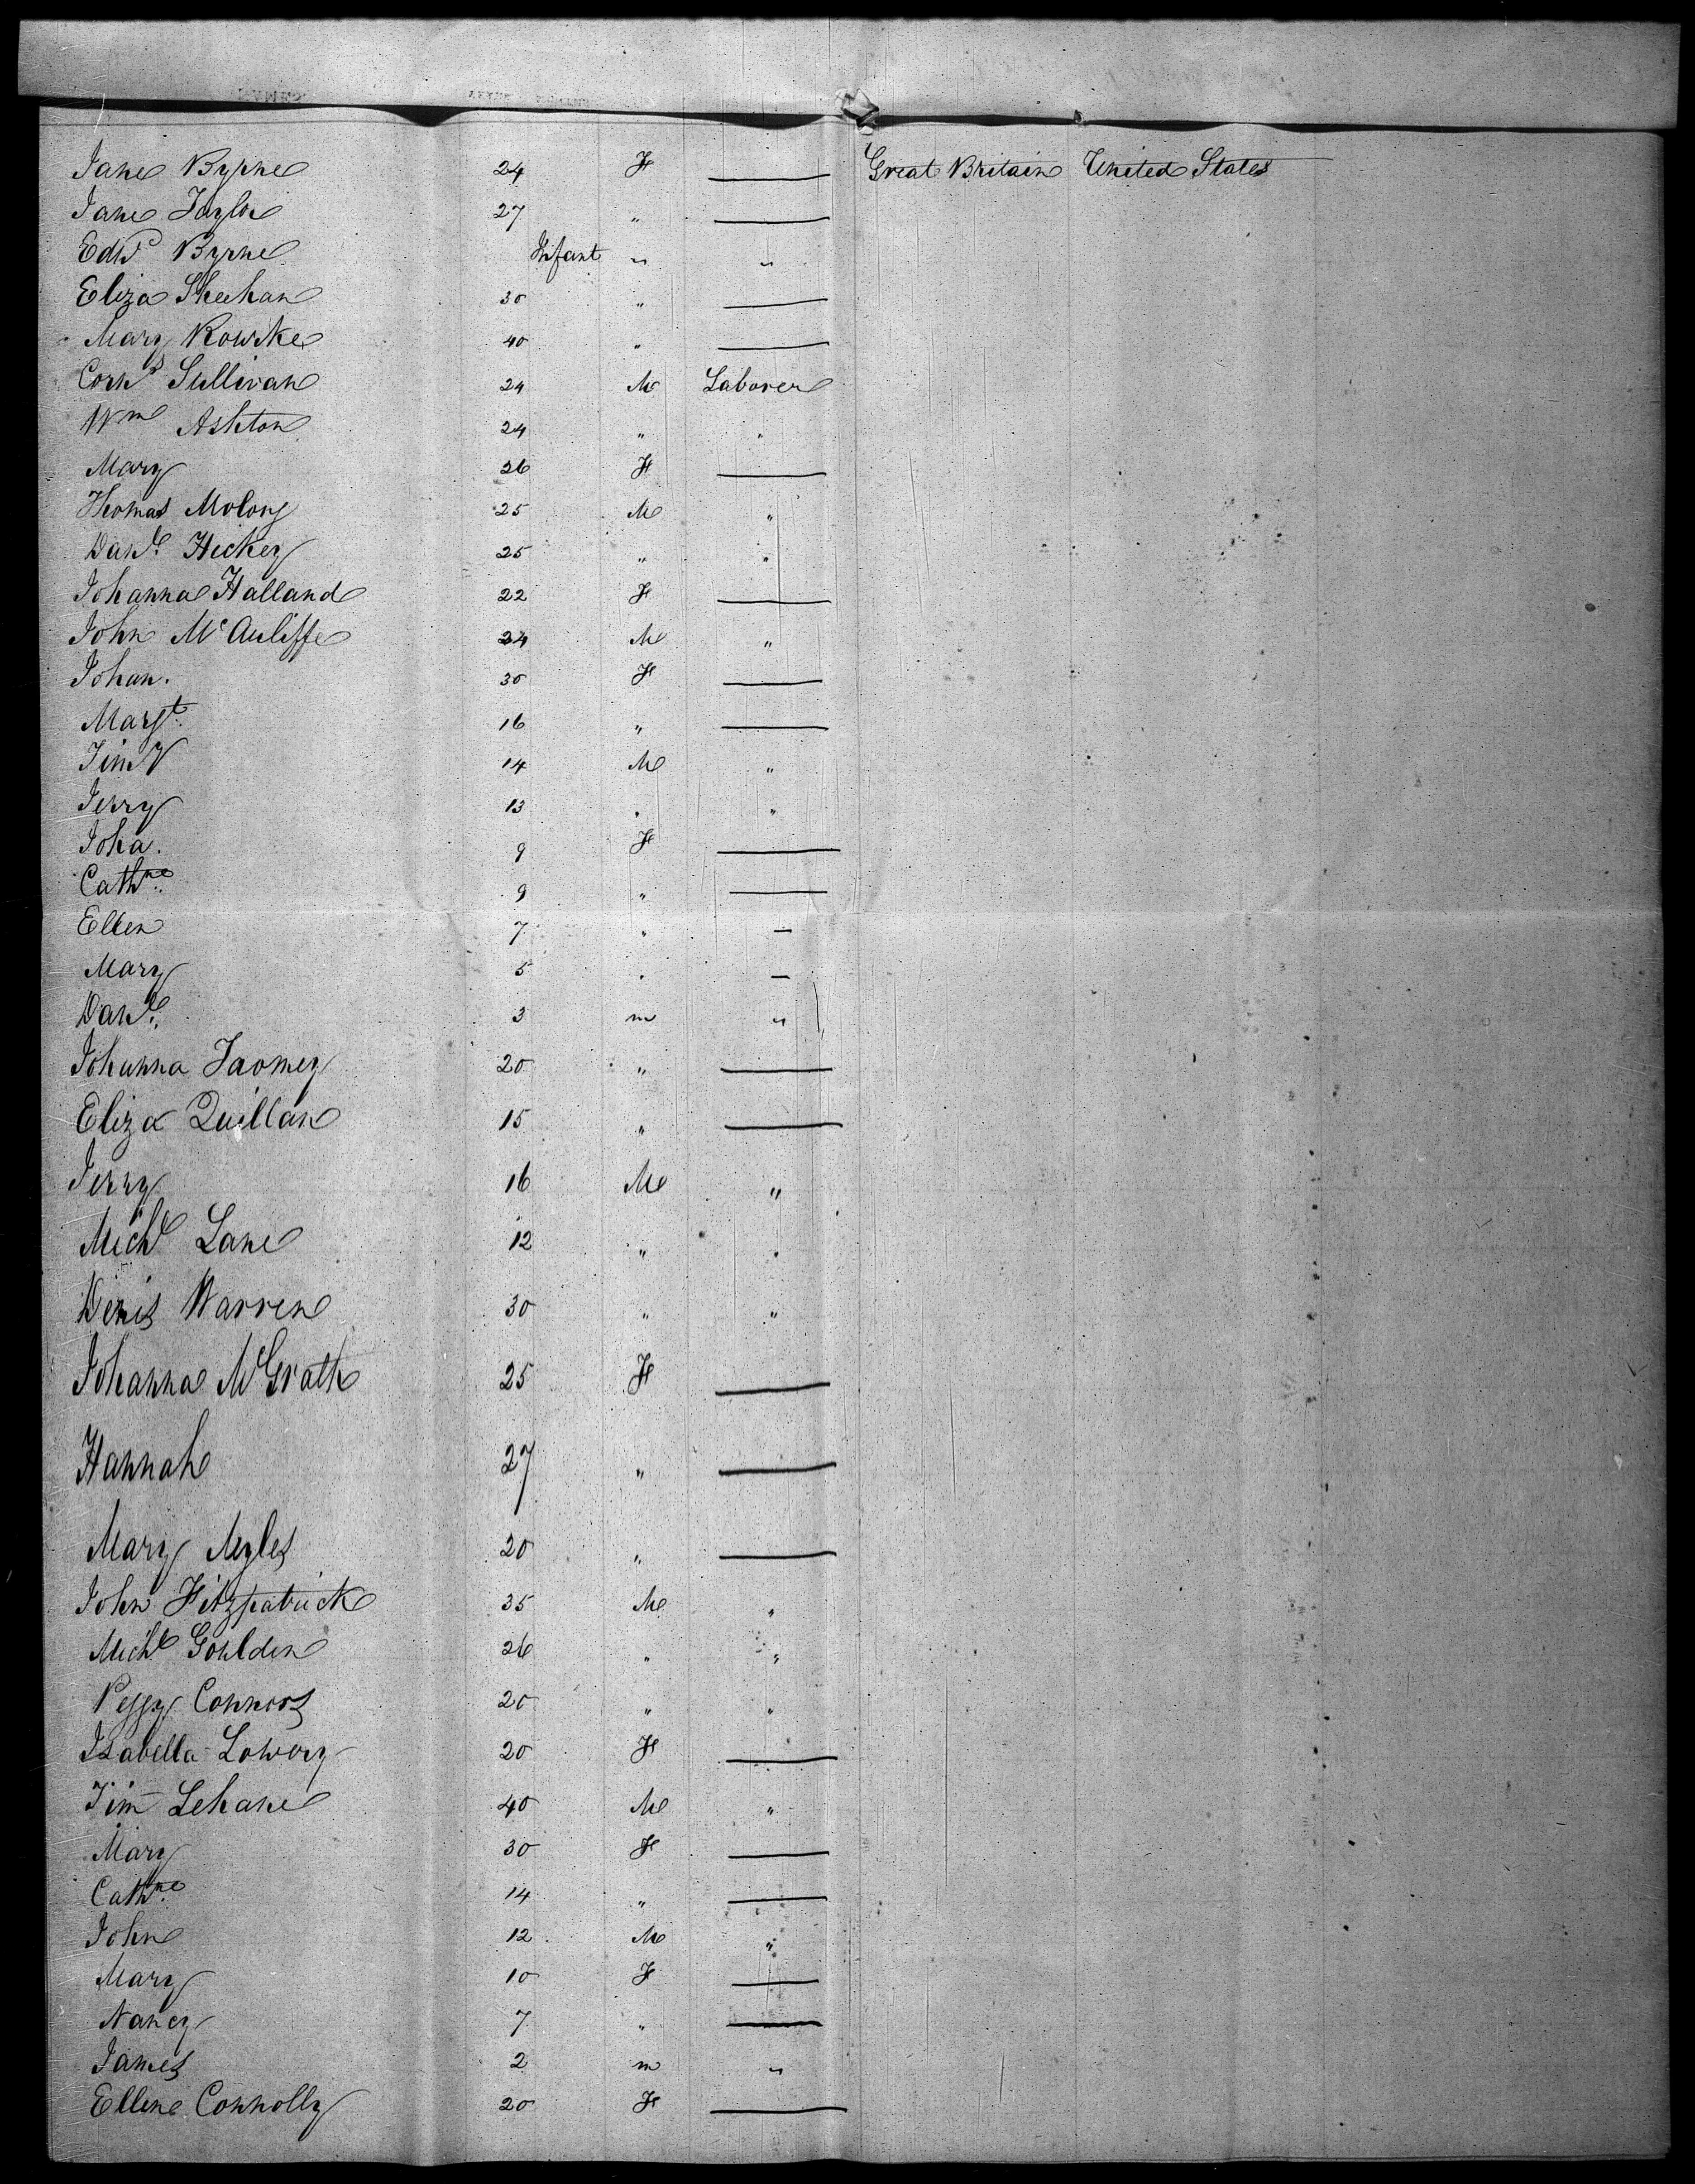 Jane Byrne 24 F — Great Britain United States
Jane Taylor 27 " —
Edwd Byrne Infant " "
Eliza Sheehan 30 " —
Mary Rourke 40 " —
Corns Sullivan 24 M Laborer
Wm Ashton 24 " "
Mary 26 F —
Thomas Molony 25 M "
Danl. Hickey 25 " "
Johanna Halland 22 F —
John McAuliffe 24 M "
Johan. 30 F —
Margt. 16 " —
Timy 14 M "
Jerry 13 " "
Joha. 9 F —
Cathne. 9 " —
Ellen 7 " —
Mary 5 " —
Danl. 3 m "
Johanna Taomey 20 " —
Eliza Quillan 15 " —
Jerry 16 M "
Michl Lane 12 " "
Denis Warren 30 " "
Johanna McGrath 25 F —
Hannah 27 " —
Mary Myles 20 " —
John Fitzpatrick 35 M "
Michl Goulden 26 " "
Peggy Connors 20 " "
Isabella Lowery 20 F —
Tim Lehane 40 M "
Mary 30 F —
Cathne. 14 " —
John 12 M "
Mary 10 F —
Nancy 7 " —
James 2 m "
Ellen Connolly 20 F —